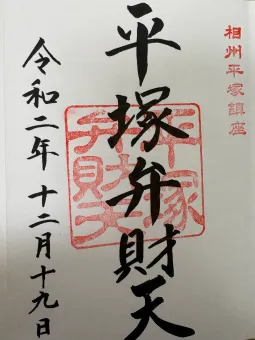 相州平塚鎮座
平塚弁財天
平塚弁財天
令和二年十二月十九日